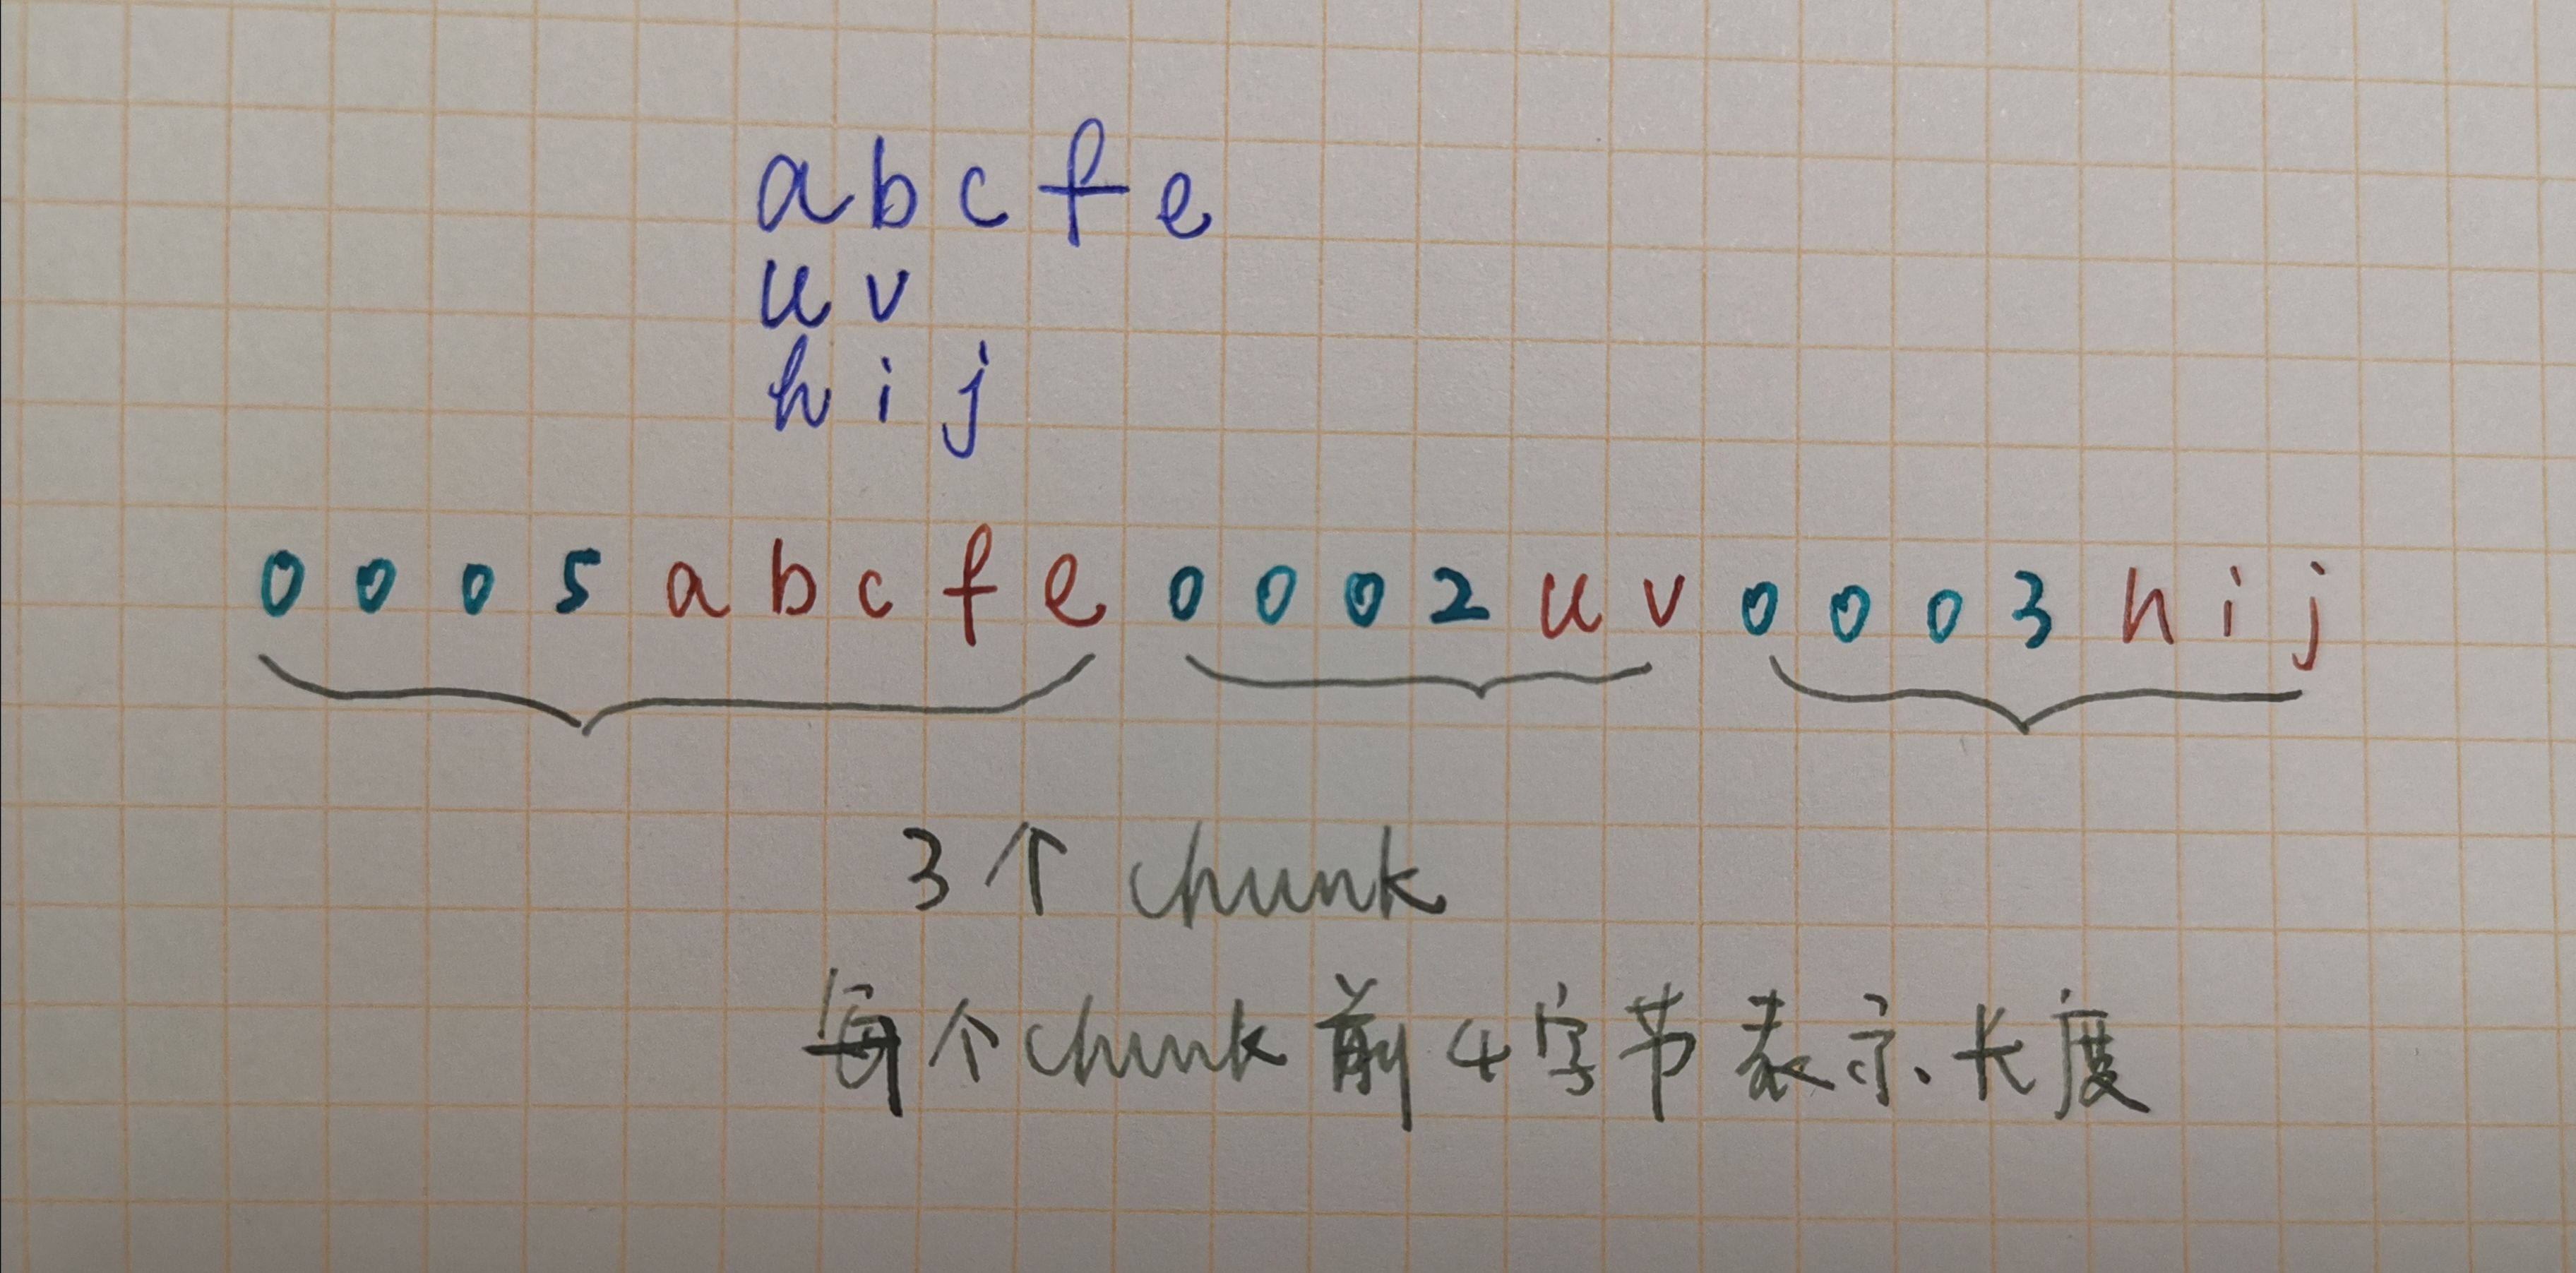 a b c f e
u v
h i j
0 0 0 5 a b c f e 0 0 0 2 u v 0 0 0 3 h i j
3个 chunk
每个chunk前4字节表示长度